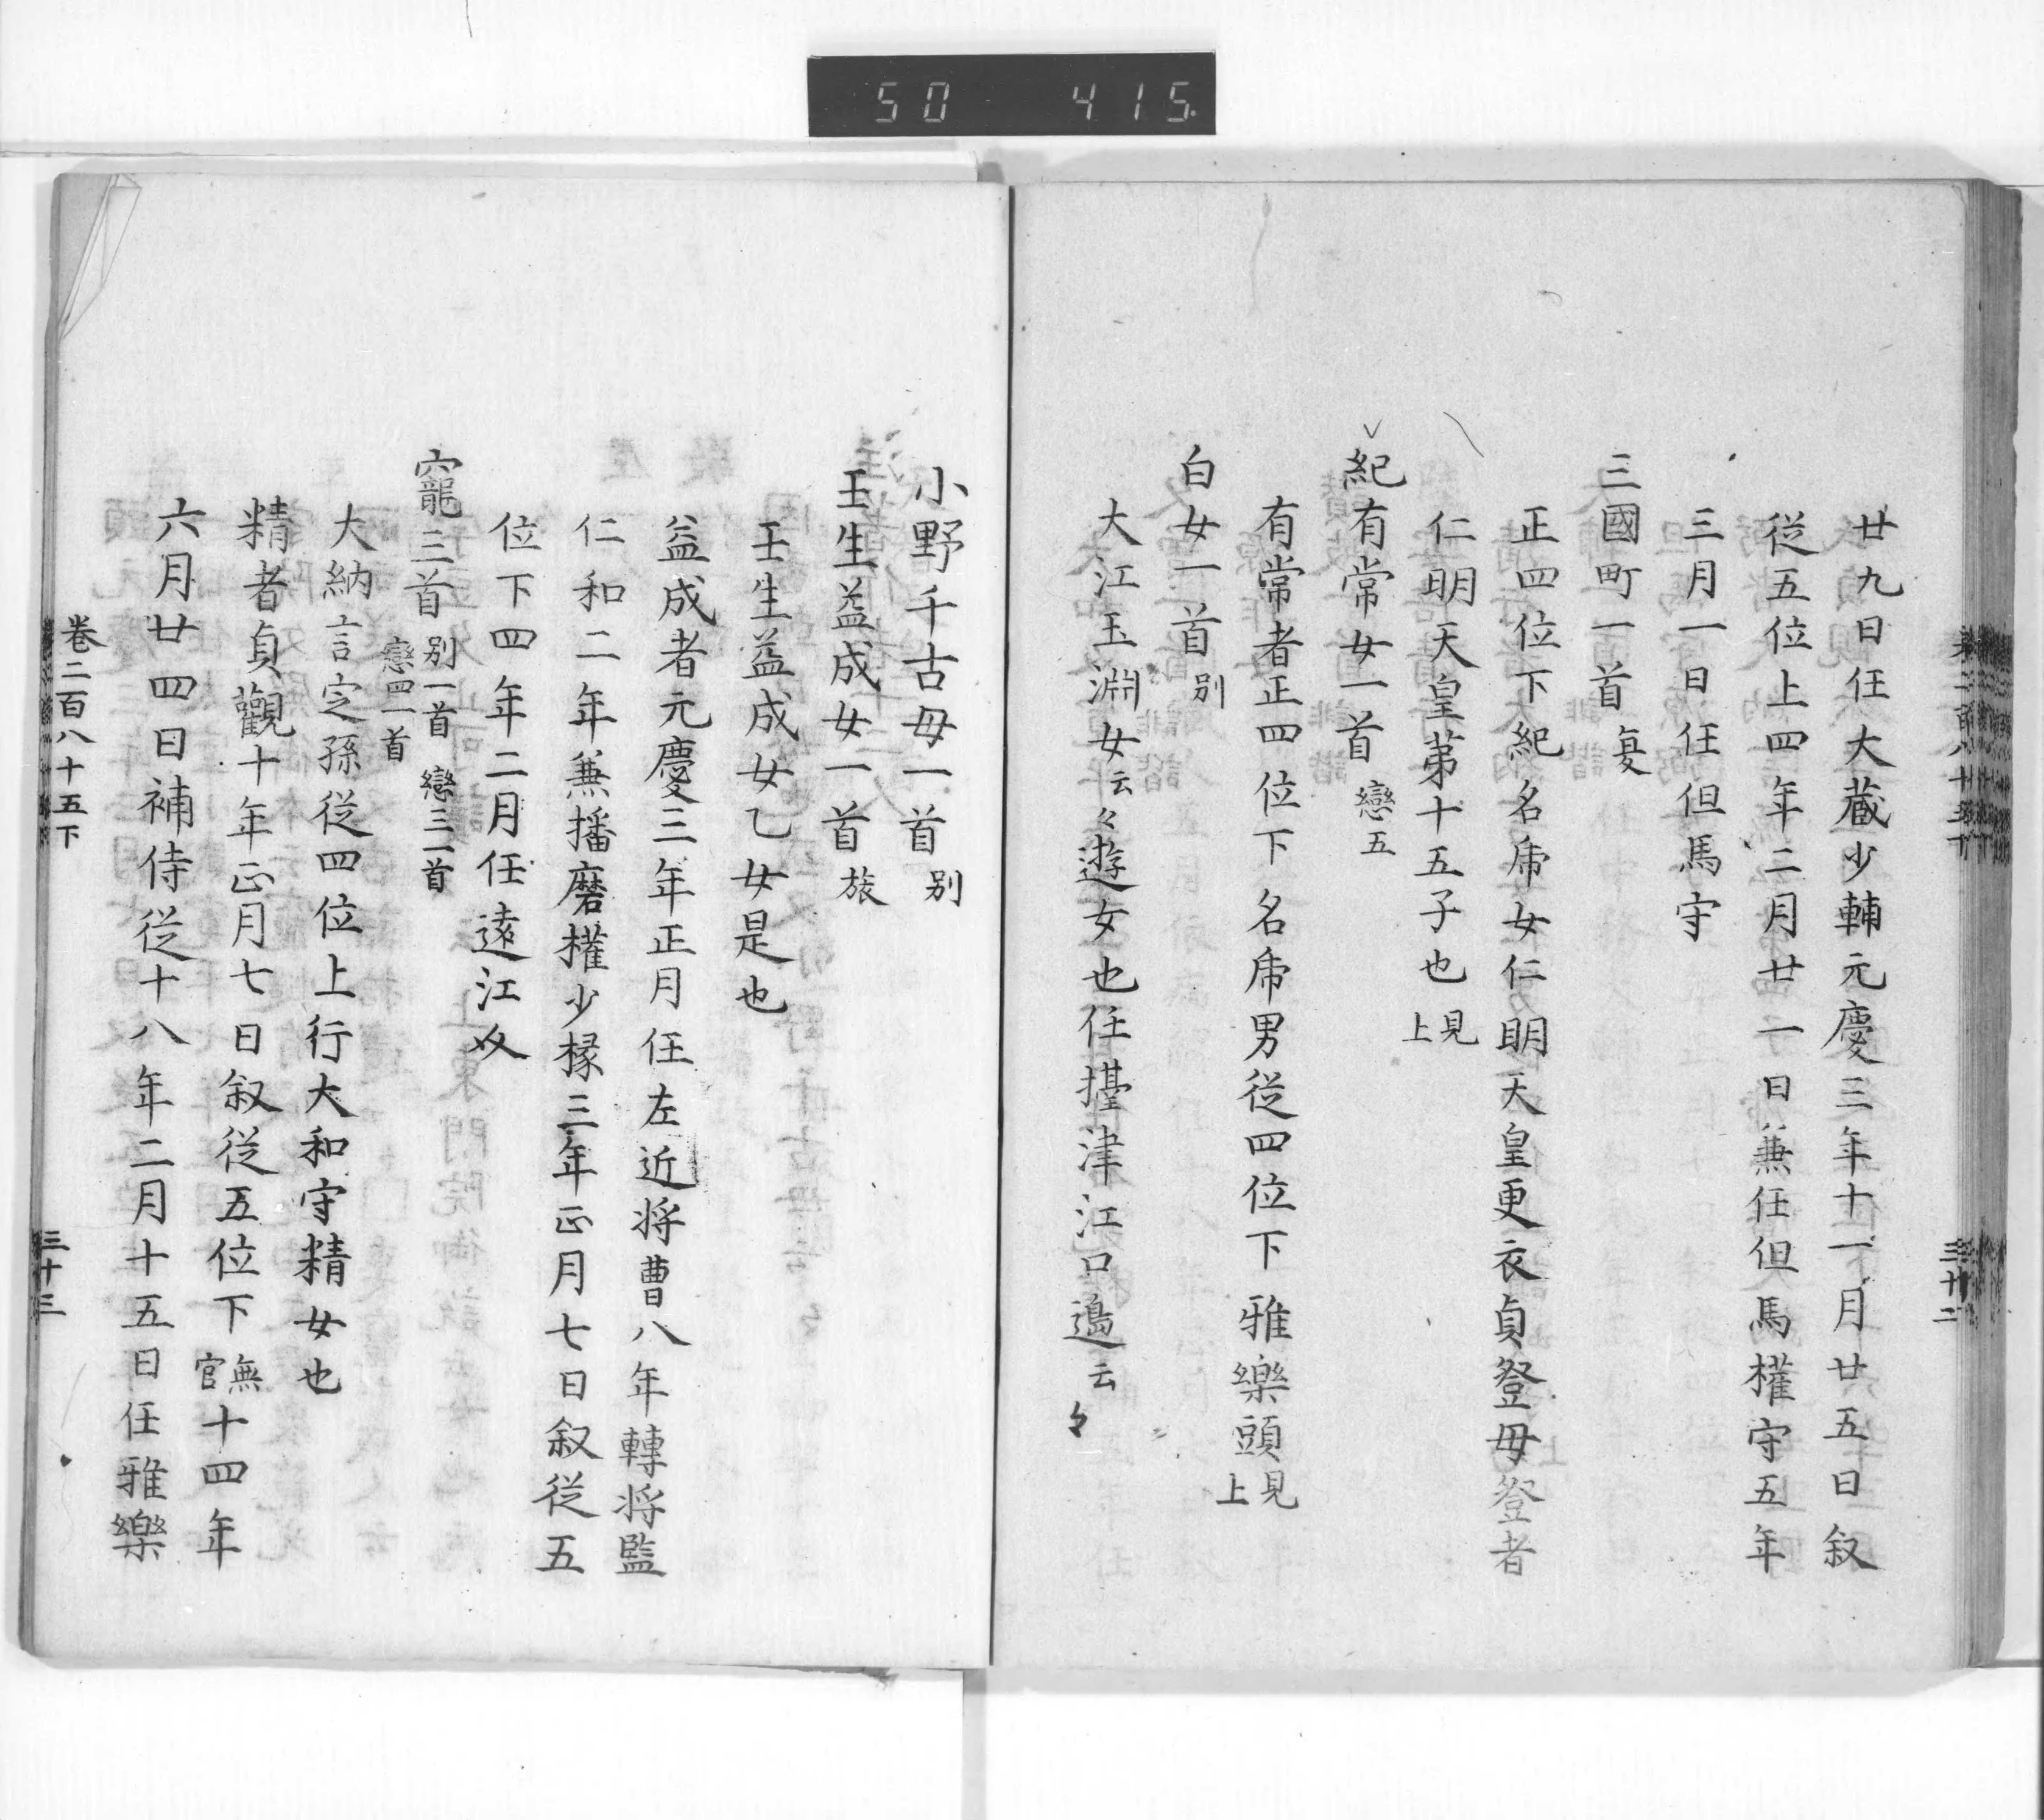 50 415
廿九日任大蔵少輔元慶三年十一月廿五日叙
従五位上四年二月廿一日兼任但馬権守五年
三月一日任但馬守
三國町一首 夏
正四位下紀名帋女仁明天皇更衣貞登母登者
仁明天皇第十五子也 見上
紀有常女一首 戀五
有常者正四位下名帋男従四位下雅樂頭 見上
白女一首 别
大江玉淵女云々遊女也任摂津江口邊云々
小野千古母一首 别
壬生益成女一首 旅
壬生益成女乙女是也
益成者元慶三年正月任左近将曹八年轉将監
仁和二年兼播磨權少掾三年正月七日叙従五
位下四年二月任遠江介
寵三首 别一首 戀三一首 戀四一首
大納言定孫従四位上行大和守精女也
精者貞觀十年正月七日叙従五位下 無官 十四年
六月廿四日補侍従十八年二月十五日任雅樂
巻二百八十五下
三十三